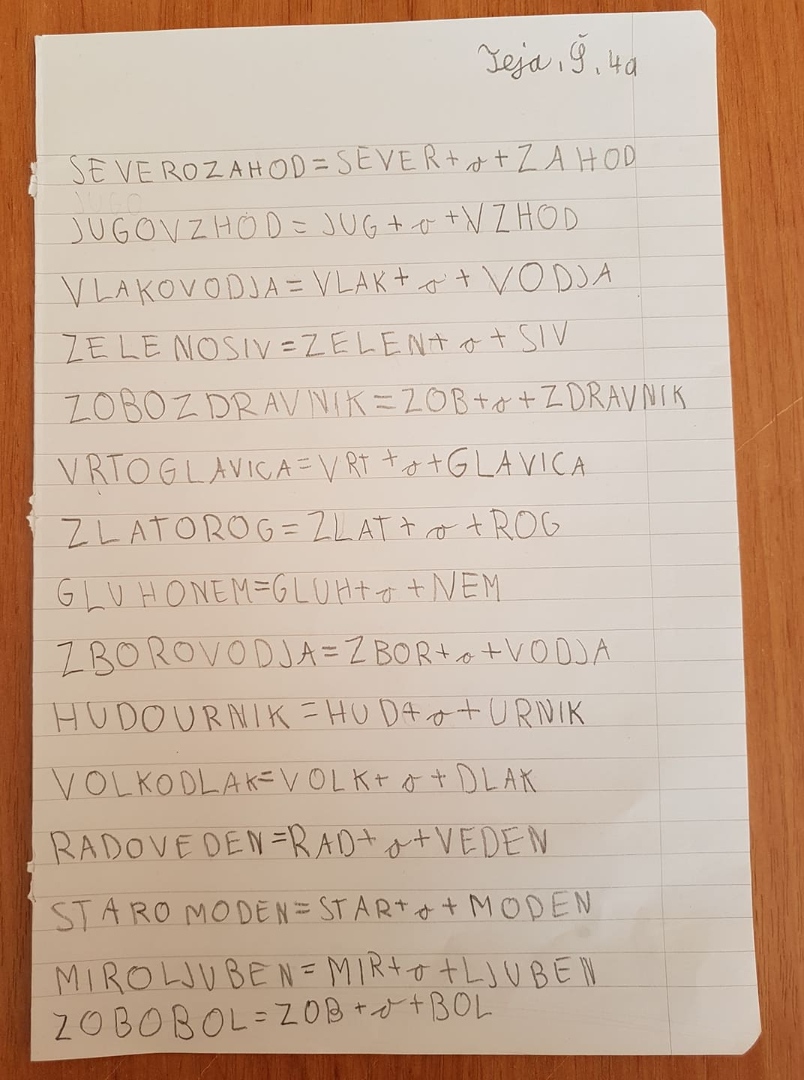 Teja, Š, 4a
SEVEROZAHOD=SEVER+o+ZAHOD
JUGOVZHOD=JUG+o+VZHOD
VLAKOVODJA=VLAK+o+VODJA
ZELENOSIV=ZELEN+o+SIV
ZOBOZDRAVNIK=ZOB+o+ZDRAVNIK
VRTOGLAVICA=VRT+o+GLAVICA
ZLATOROG=ZLAT+o+ROG
GLUHONEM=GLUH+o+NEM
ZBOROVODJA=ZBOR+o+VODJA
HUDOURNIK=HUD+o+URNIK
VOLKODLAK=VOLK+o+DLAK
RADOVEDEN=RAD+o+VEDEN
STAROMODEN=STAR+o+MODEN
MIROLJUBEN=MIR+o+LJUBEN
ZOBOBOL=ZOB+o+BOL